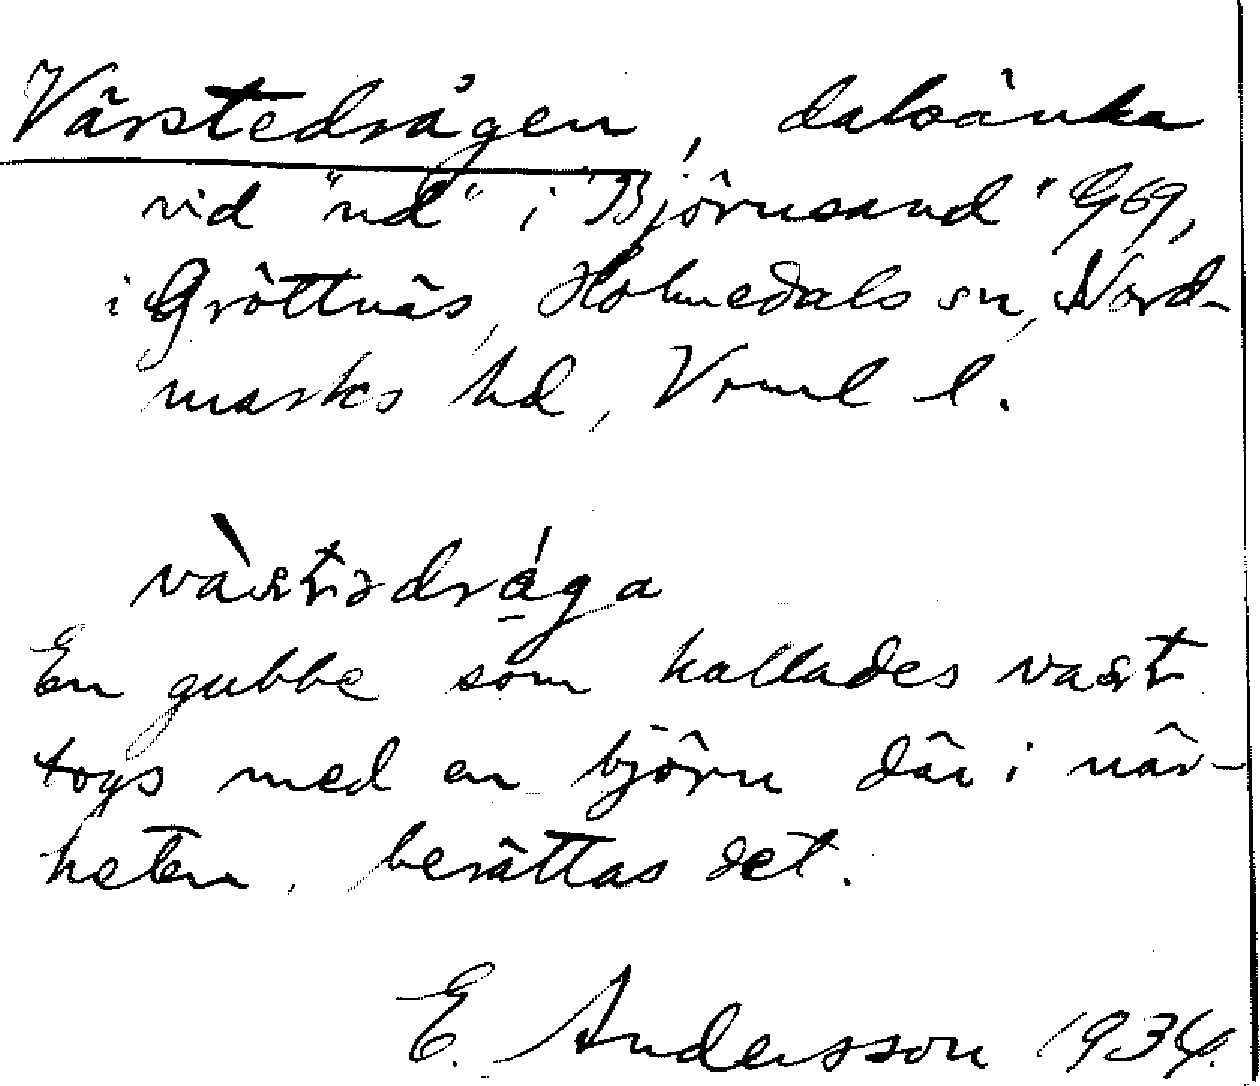 Värstedrågen, dalsänka
vid "nd" i "Björnsand" G69,
i Gröttnäs, Holmedals sn, Nord-
marks hd, Vrml l.
va̍stədråga
En gubbe som kallades vast
togs med en björn där i när-
heten, berättas det.
E. Andersson 1934.